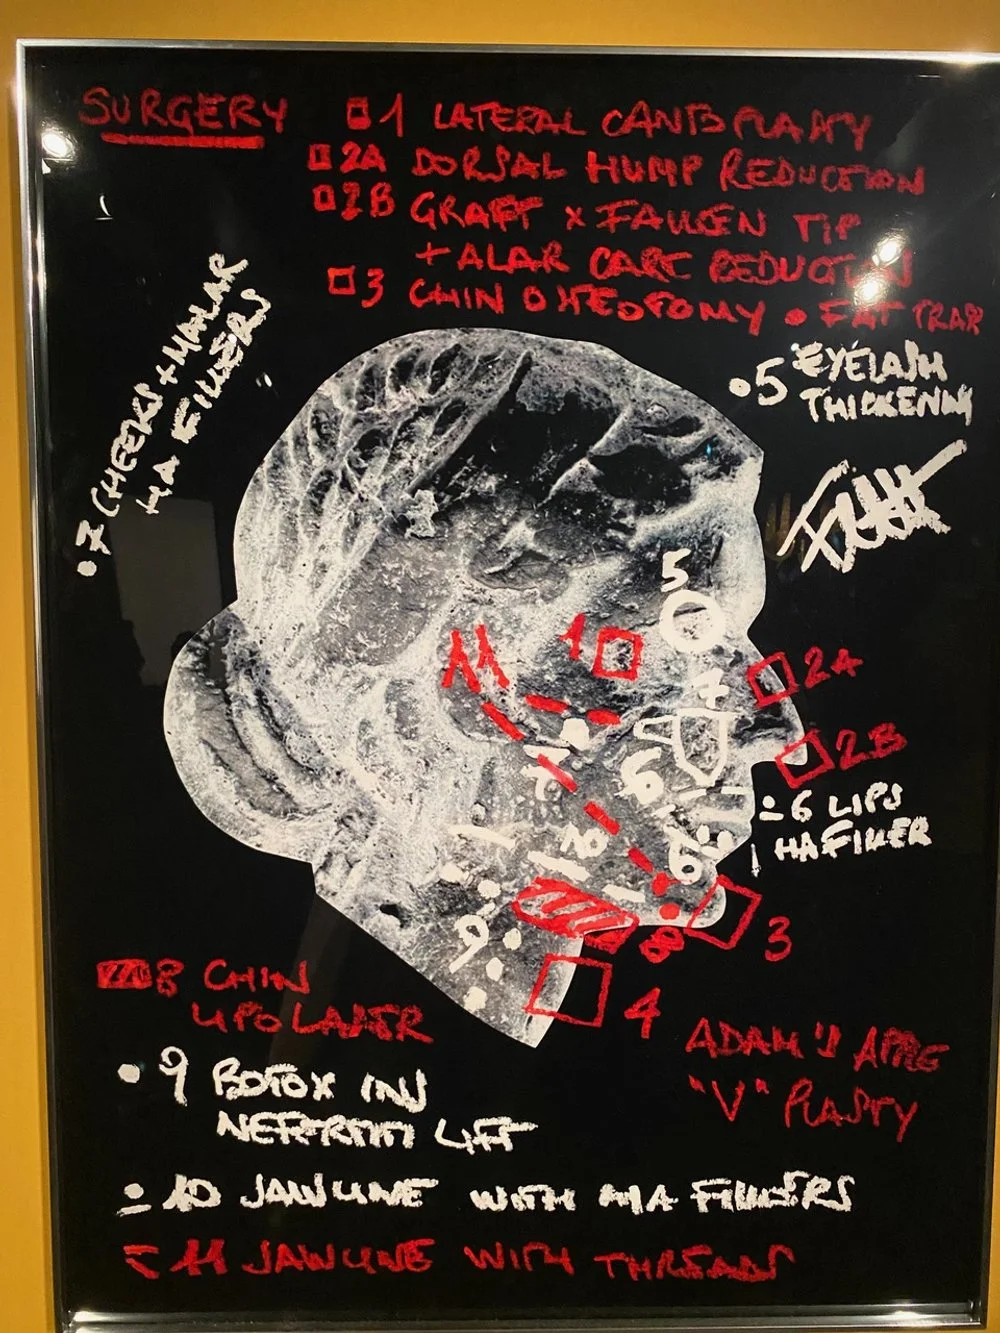 SURGERY
1 LATERAL CANTOPLASTY
2A DORSAL HUMP REDUCTION
2B GRAFT x FALLEN TIP
+ ALAR CARE REDUCTION
3 CHIN OSTEOTOMY • FAT TRAP
• 5 EYELASH
THICKENING
• 7 CHEEKS + MALAR
HA FILLERS
5
1
11
2A
7
2B
6
6 LIPS
HA FILLER
10
6
9
8
3
4
8 CHIN
LIPOLASER
ADAM'S APPLE
"V" PLASTY
• 9 BOTOX IN
NEFERTITI LIFT
10 JAWLINE WITH HA FILLERS
11 JAWLINE WITH THREADS